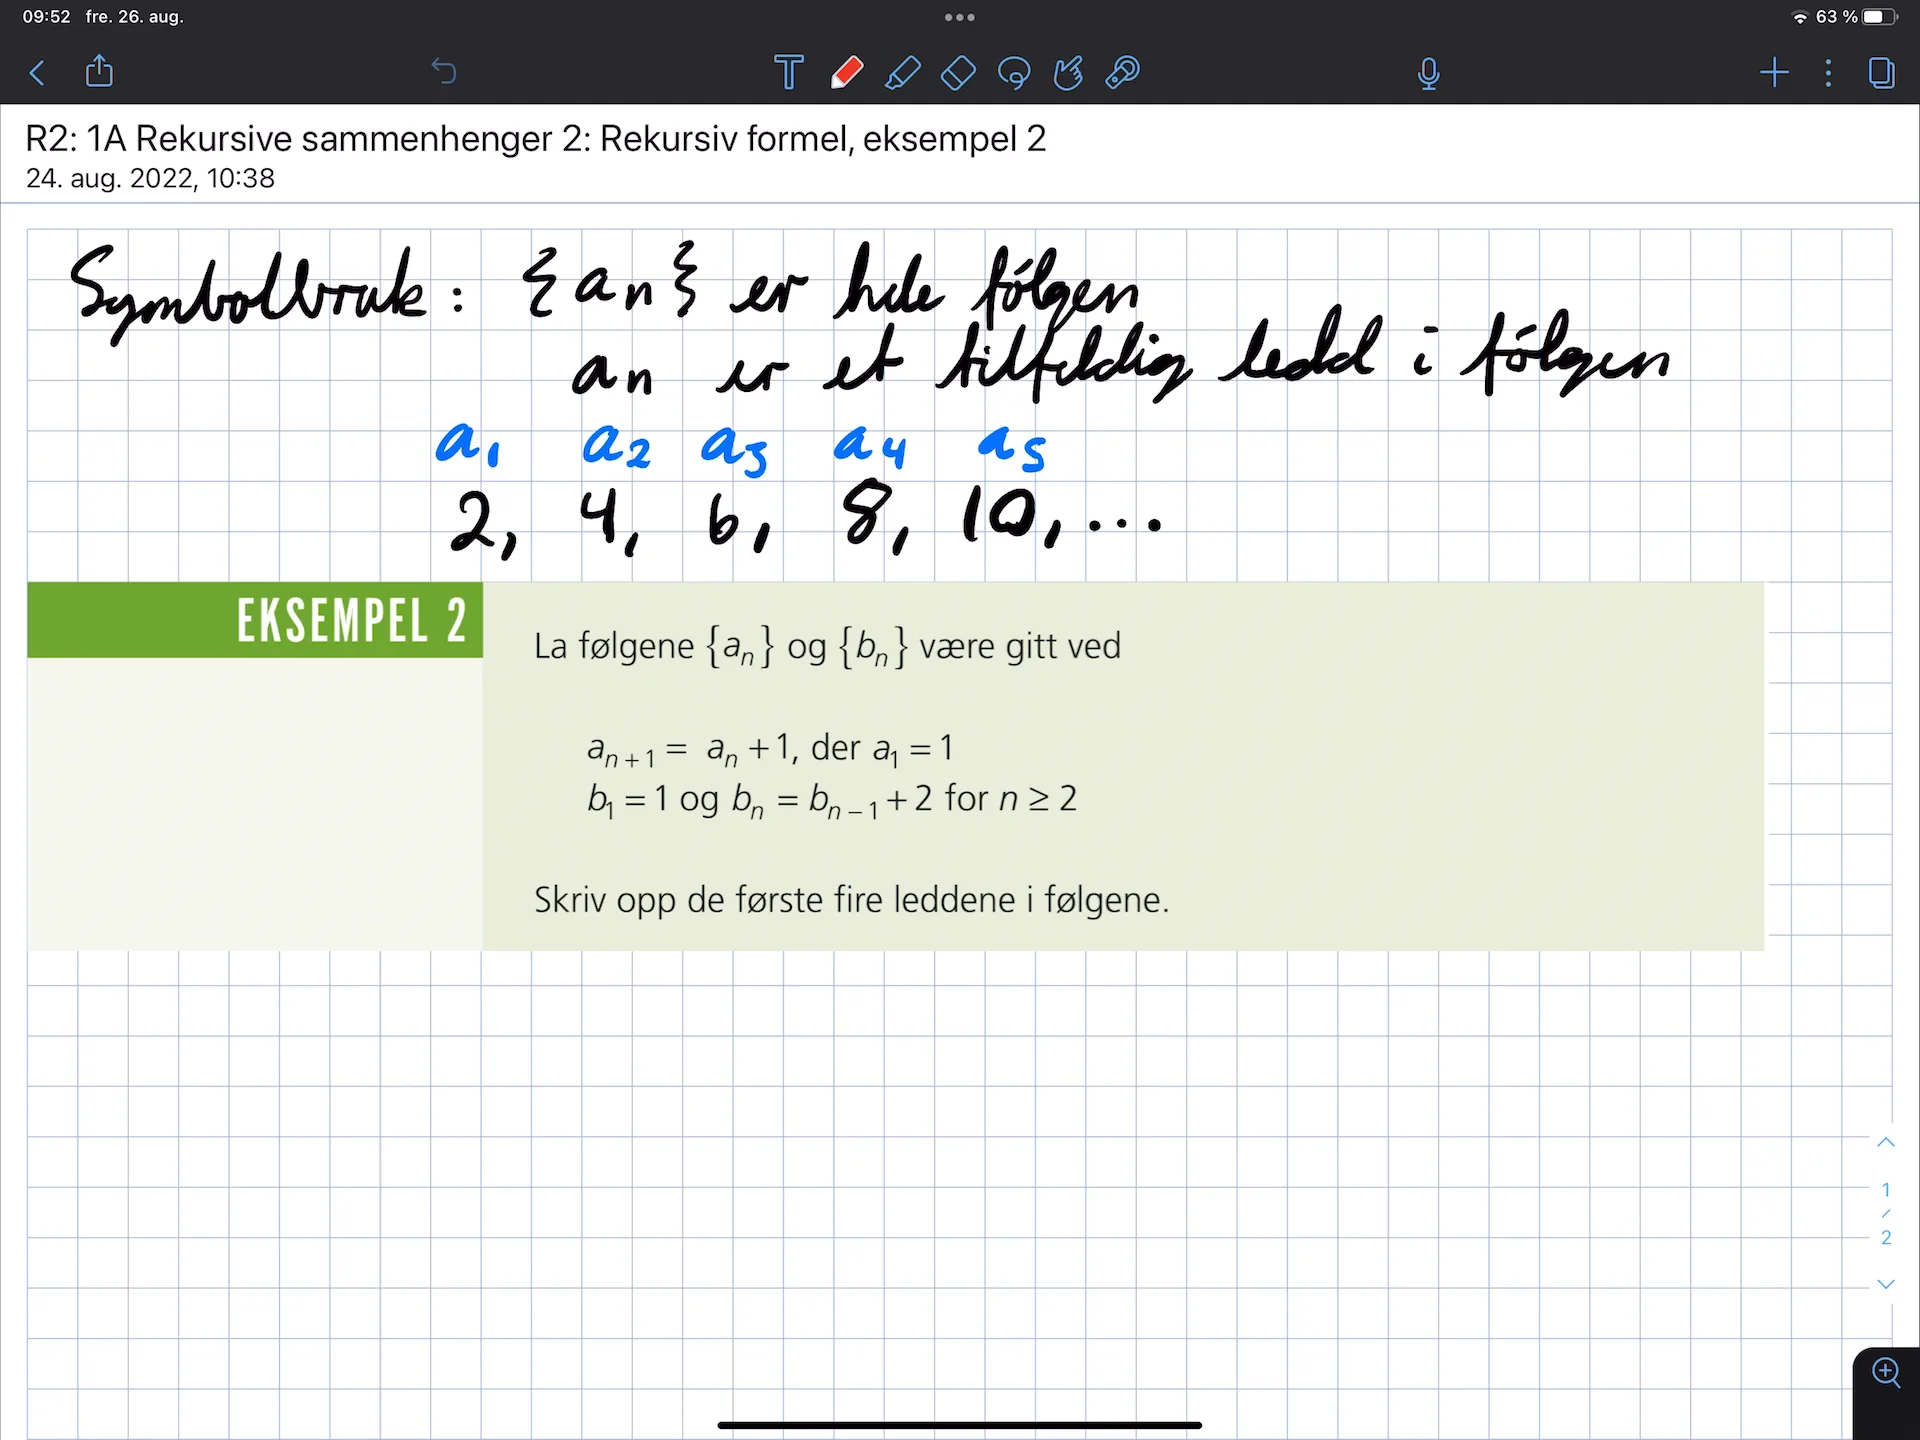 09:52 fre. 26. aug.
63 %
R2: 1A Rekursive sammenhenger 2: Rekursiv formel, eksempel 2
24. aug. 2022, 10:38
Symbolbruk: {an} er hele følgen
an er et tilfeldig ledd i følgen
a1 a2 a3 a4 a5
2, 4, 6, 8, 10, ...
EKSEMPEL 2
La følgene {aₙ} og {bₙ} være gitt ved
aₙ₊₁ = aₙ + 1, der a₁ = 1
b₁ = 1 og bₙ = bₙ₋₁ + 2 for n ≥ 2
Skriv opp de første fire leddene i følgene.
1
/
2